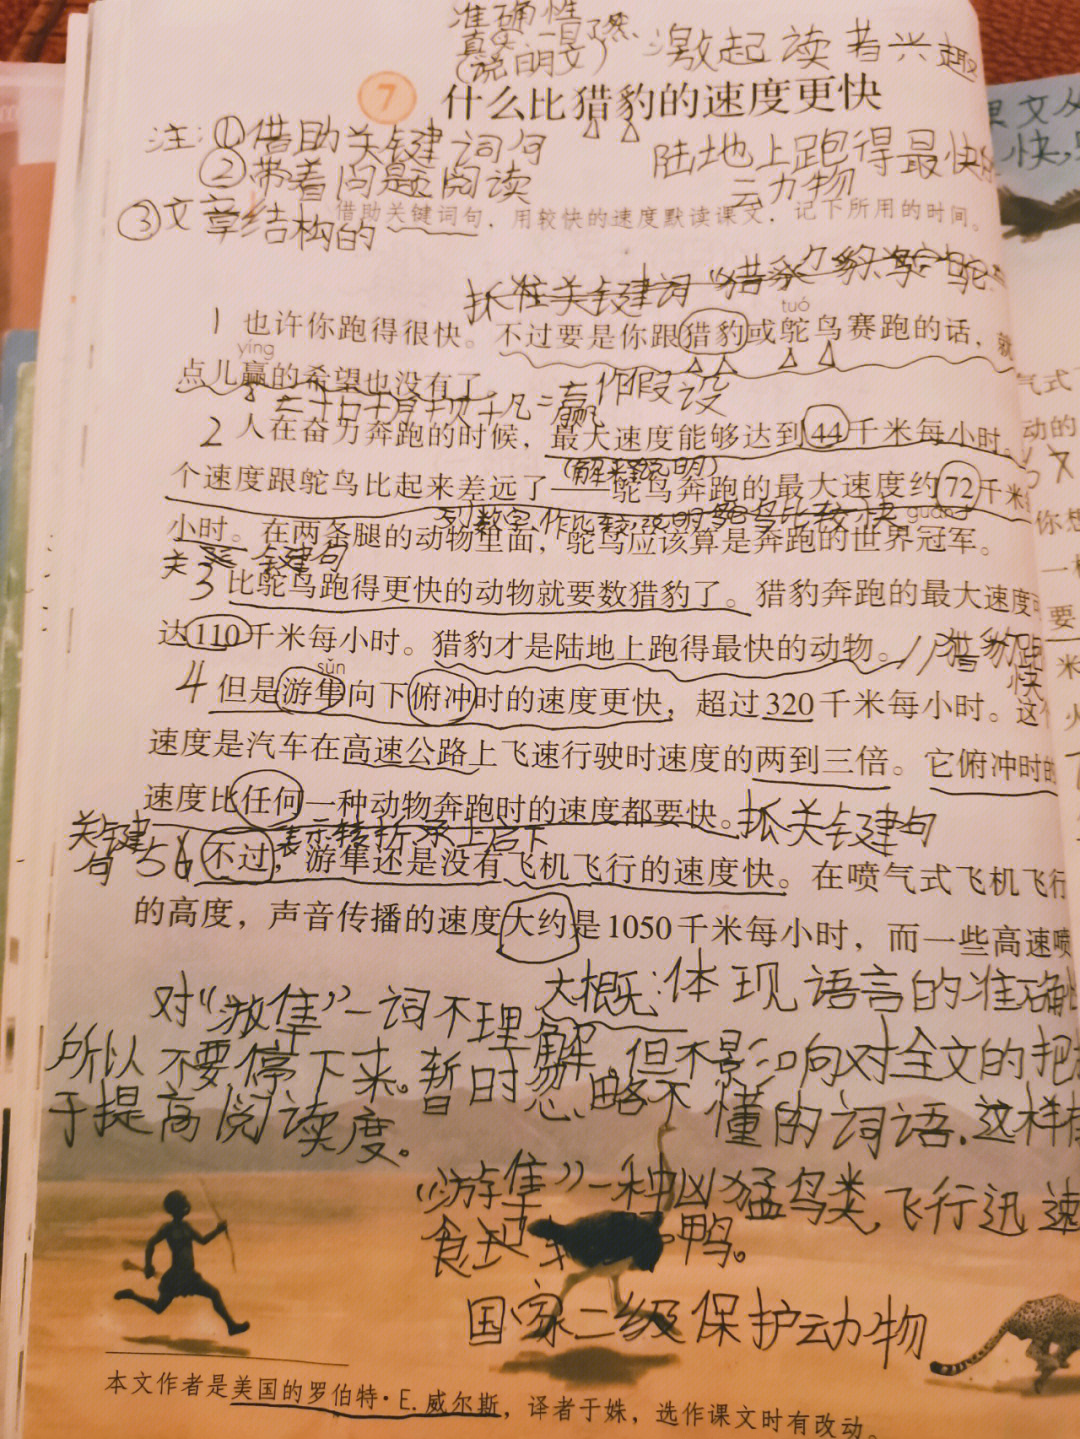 准确性
真实、一目了然
(说明文)
激起读者兴趣
7 什么比猎豹的速度更快
注:①借助关键词句
②带着问题阅读
③文章结构的
陆地上跑得最快
动物
借助关键词句，用较快的速度默读课文，记下所用的时间。
抓住关键词“猎豹
tuó
1 也许你跑得很快。不过要是你跟猎豹或鸵鸟赛跑的话，就
yíng
点儿赢的希望也没有了。
赢 作假设
2 人在奋力奔跑的时候，最大速度能够达到44千米每小时。
(解释说明)
个速度跟鸵鸟比起来差远了——鸵鸟奔跑的最大速度约72千米
列数字 作比较,说明鸵鸟比较快
guàn
小时。在两条腿的动物里面，鸵鸟应该算是奔跑的世界冠军。
关键句
3 比鸵鸟跑得更快的动物就要数猎豹了。猎豹奔跑的最大速度
达110千米每小时。猎豹才是陆地上跑得最快的动物。//猎豹跑
快
sǔn
4 但是游隼向下俯冲时的速度更快，超过320千米每小时。这
速度是汽车在高速公路上飞速行驶时速度的两到三倍。它俯冲时的
速度比任何一种动物奔跑时的速度都要快。抓关键句
关键句
表示转折 承上启下
5 不过，游隼还是没有飞机飞行的速度快。在喷气式飞机飞行
的高度，声音传播的速度大约是1050千米每小时，而一些高速喷
大概:体现语言的准确
对“游隼”一词不理解,但不影响对全文的把
所以不要停下来。暂时忽略不懂的词语,这样
于提高阅读速度。
“游隼”一种凶猛鸟类,飞行迅速
鸭。
国家二级保护动物
本文作者是美国的罗伯特·E.威尔斯，译者于姝，选作课文时有改动。